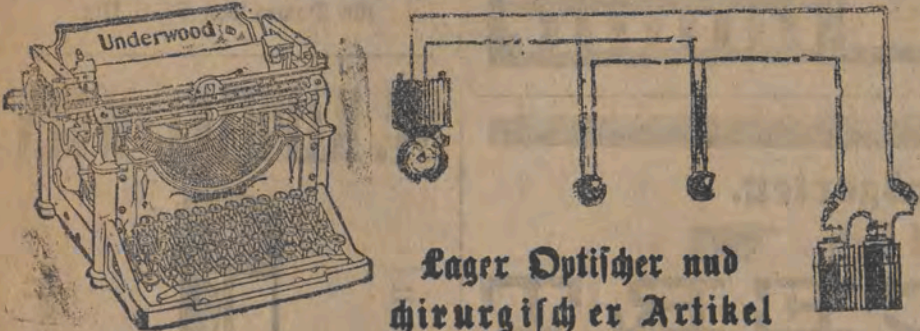 Underwood
Lager Optischer nnd
chirurgisch er Artikel